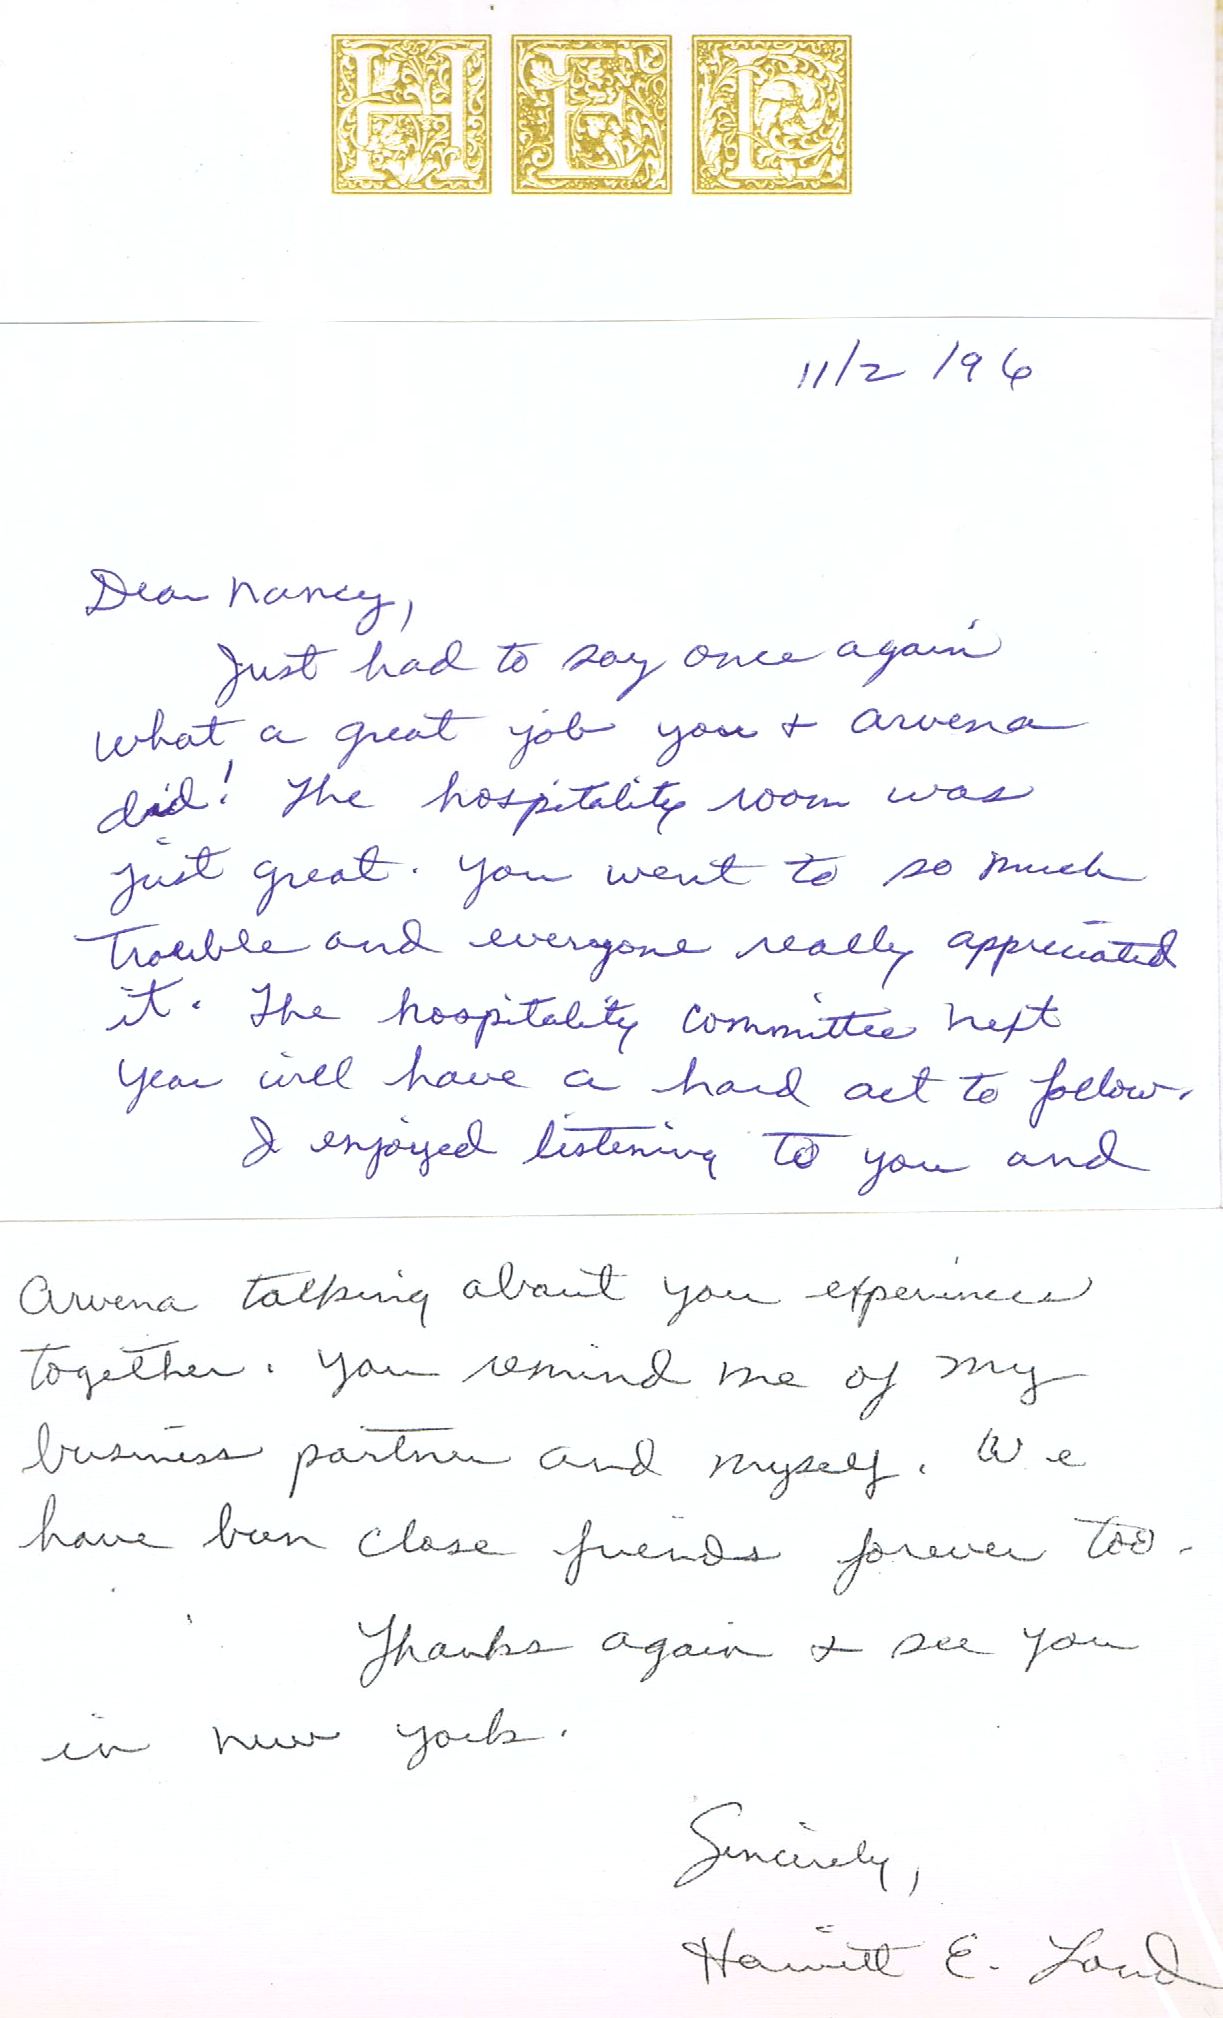 HEL
11/2/96
Dear Nancy,
Just had to say once again
what a great job you & Arvena
did! The hospitality room was
just great. You went to so much
trouble and everyone really appreciated
it. The hospitality committee next
year will have a hard act to follow.
I enjoyed listening to you and
Arvena talking about your experiences
together. You remind me of my
business partner and myself. We
have been close friends forever too.
Thanks again & see you
in New York.
Sincerely,
Harriett E. Land